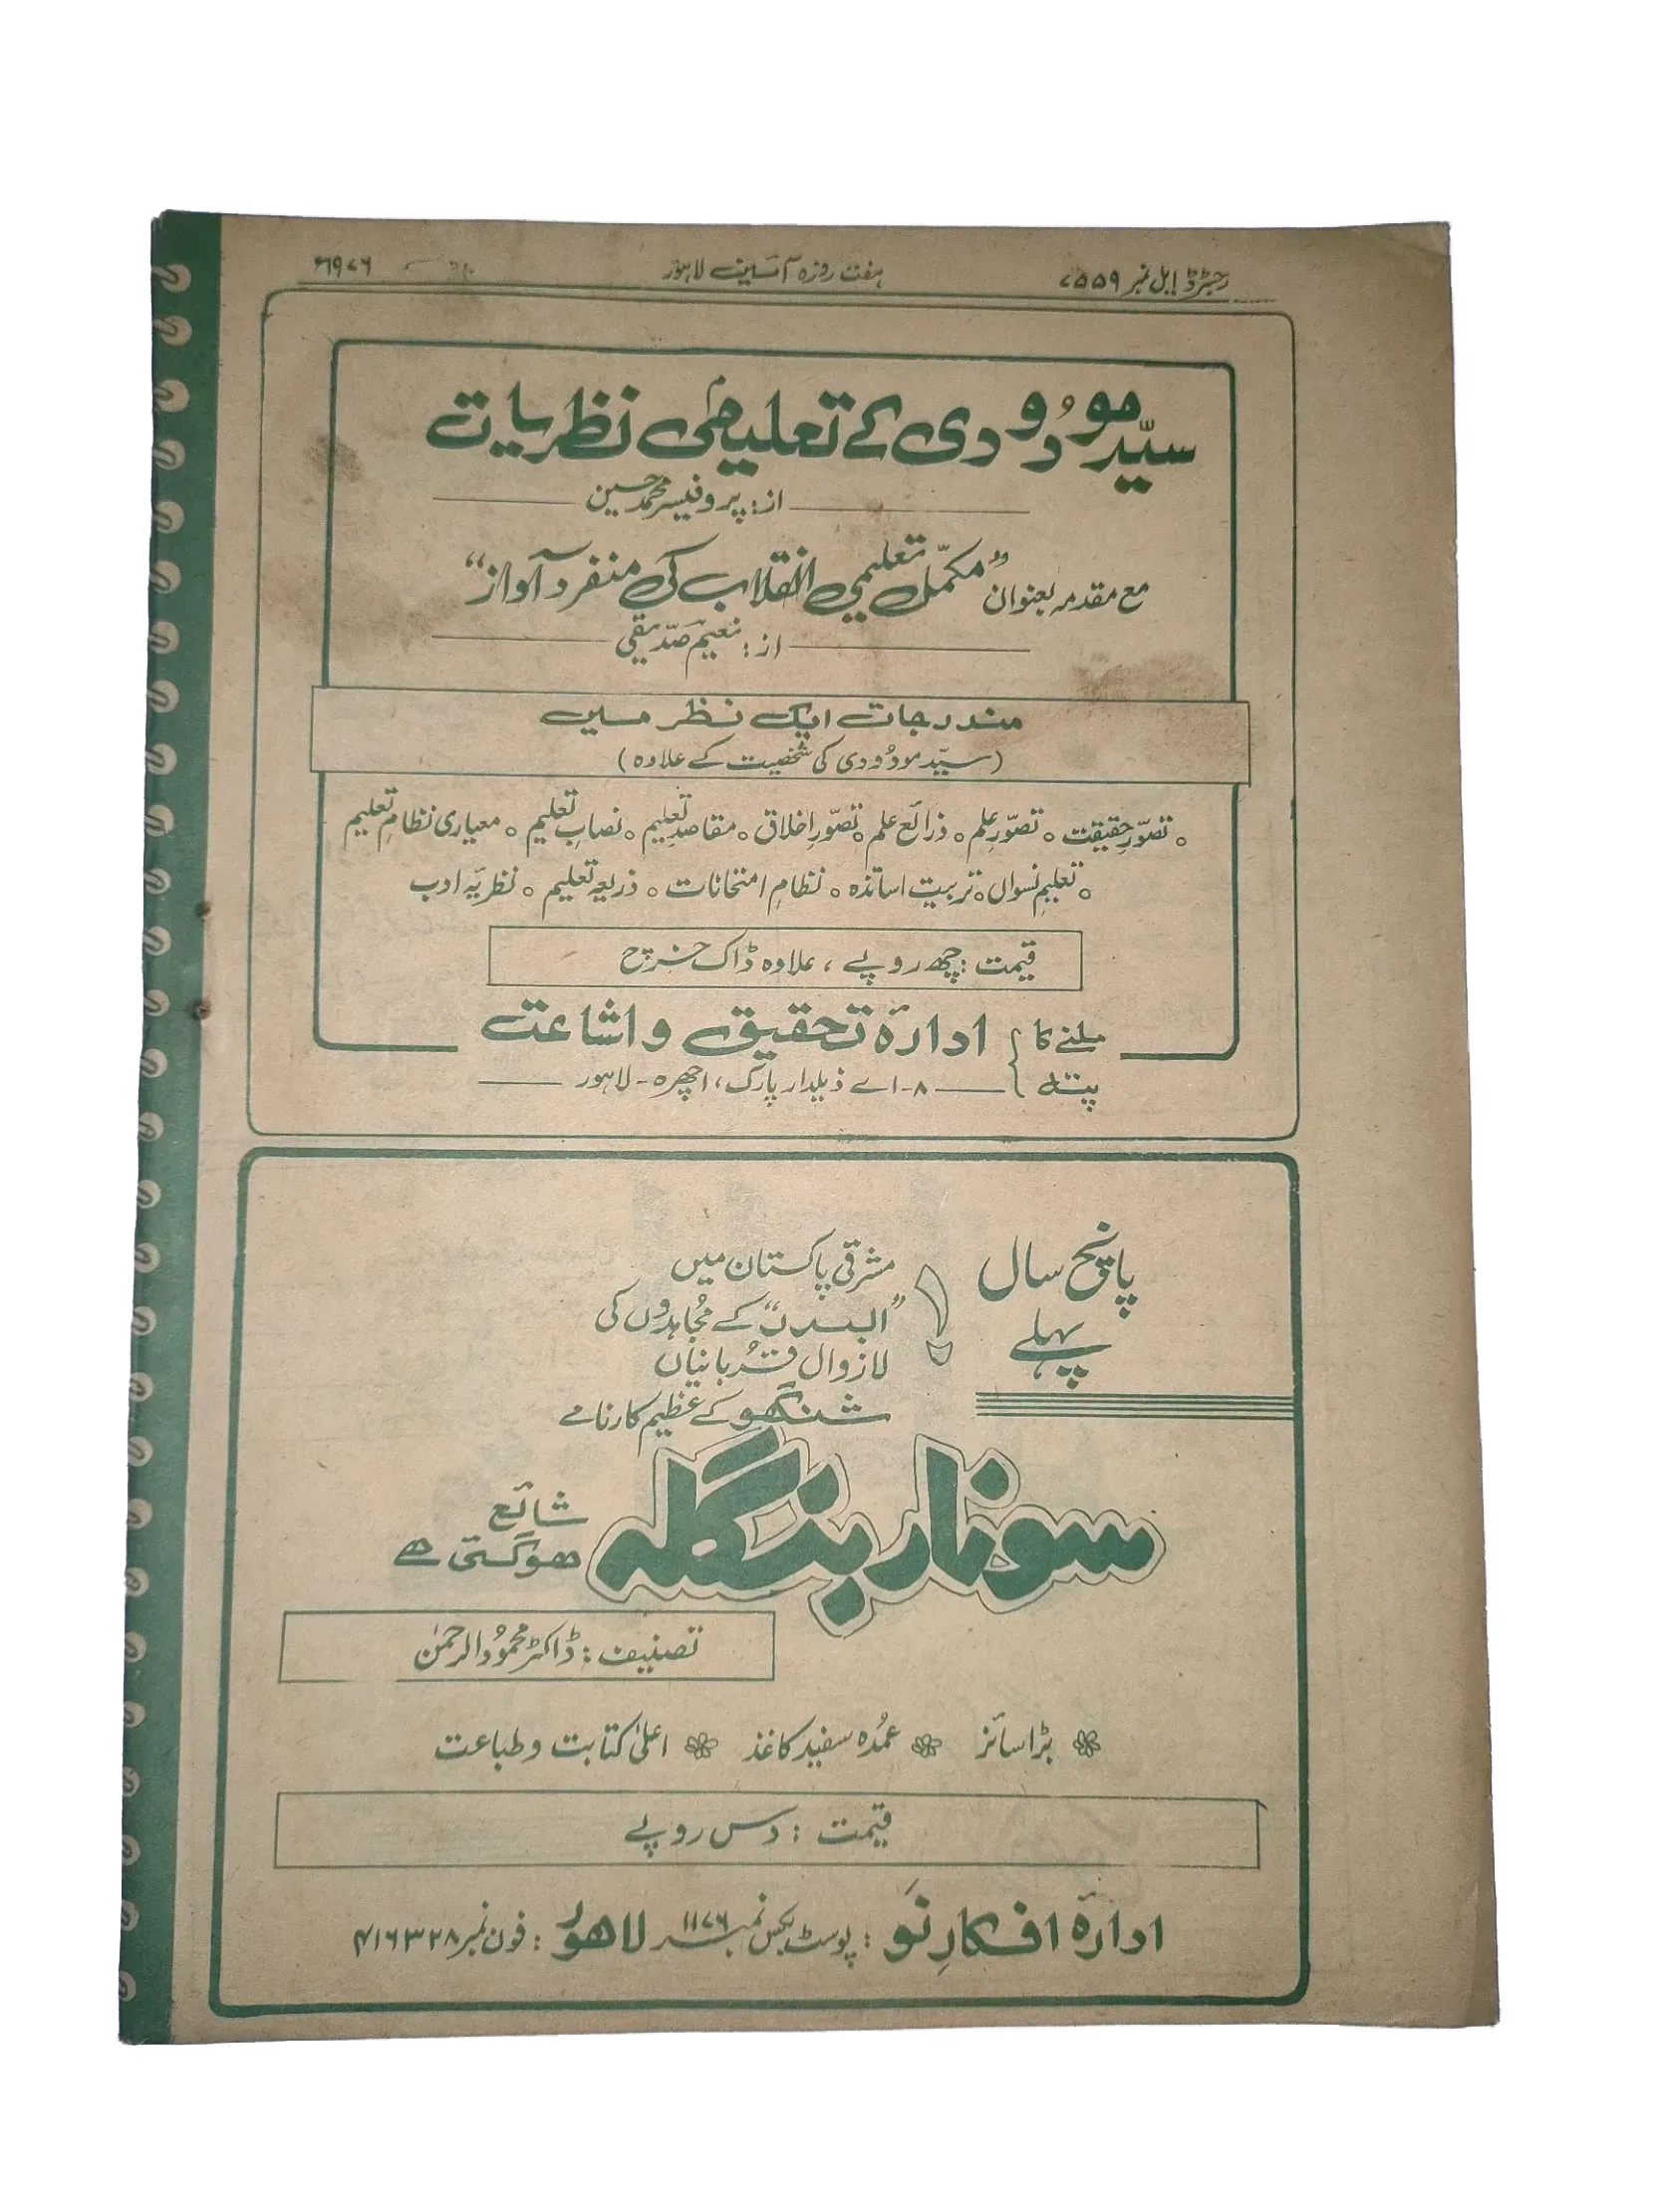 رجسٹرڈ ایل نمبر ۷۵۵۹
ہفت روزہ آئین لاہور
۱۹۷۶ء
سیّد مودُودی کے تعلیمی نظریات
از: پروفیسر محمد حسین
مع مقدمہ بعنوان "مکمّل تعلیمی انقلاب کی منفرد آواز"
از: نعیم صدّیقی
مندرجات ایک نظر میں
(سیّد مودُودی کی شخصیت کے علاوہ)
◦ تصوّرِ حقیقت ◦ تصوّرِ علم ◦ ذرائع علم ◦ تصوّرِ اخلاق ◦ مقاصدِ تعلیم ◦ نصابِ تعلیم ◦ معیاری نظامِ تعلیم
◦ تعلیمِ نسواں ◦ تربیت اساتذہ ◦ نظامِ امتحانات ◦ ذریعہ تعلیم ◦ نظریۂ ادب
قیمت: چھ روپے، علاوہ ڈاک خرچ
ملنے کا پتہ } ادارۂ تحقیق و اشاعت
۸-اے ذیلدار پارک، اچھرہ - لاہور
پانچ سال
پہلے
مشرقی پاکستان میں
"البدر" کے مجُاہدوں کی
لازوال قُربانیاں
شنگھو کے عظیم کارنامے
سونار بنگلہ
شائع
ہوگئی ہے
تصنیف: ڈاکٹر محمُودالرحمٰن
بڑا سائز عمُدہ سفید کاغذ اعلیٰ کتابت و طباعت
قیمت: دس روپے
ادارۂ افکارِ نَو: پوسٹ بکس نمبر ۱۱۷۶ لاہور: فون نمبر ۴۱۶۳۲۸